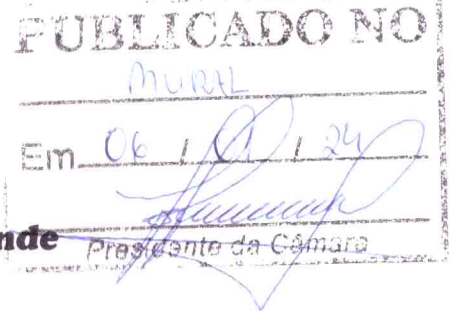 PUBLICADO NO
MURAL
Em 06 / / 24
nde
Presidente da Câmara